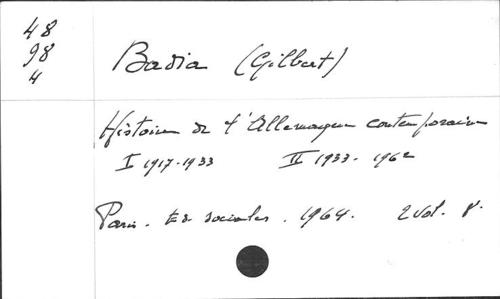 48
98
4
Badia (Gilbert)
Histoire de l'Allemagne contemporaine
I 1917-1933 II 1933-1962
Paris. Ed sociales. 1964. 2 vol. 8°.